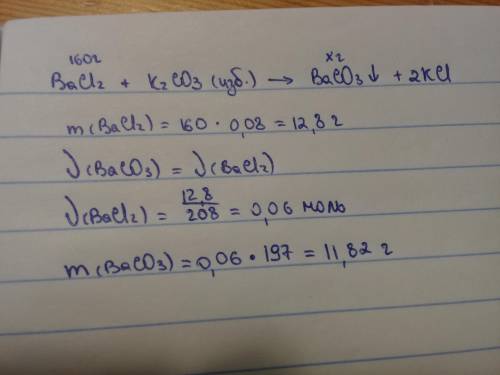 160г хг
BaCl₂ + K₂CO₃ (изб.) → BaCO₃↓ + 2KCl
m(BaCl₂) = 160 · 0,08 = 12,8 г
ν(BaCO₃) = ν(BaCl₂)
ν(BaCl₂) = 12,8/208 = 0,06 моль
m(BaCO₃) = 0,06 · 197 = 11,82 г